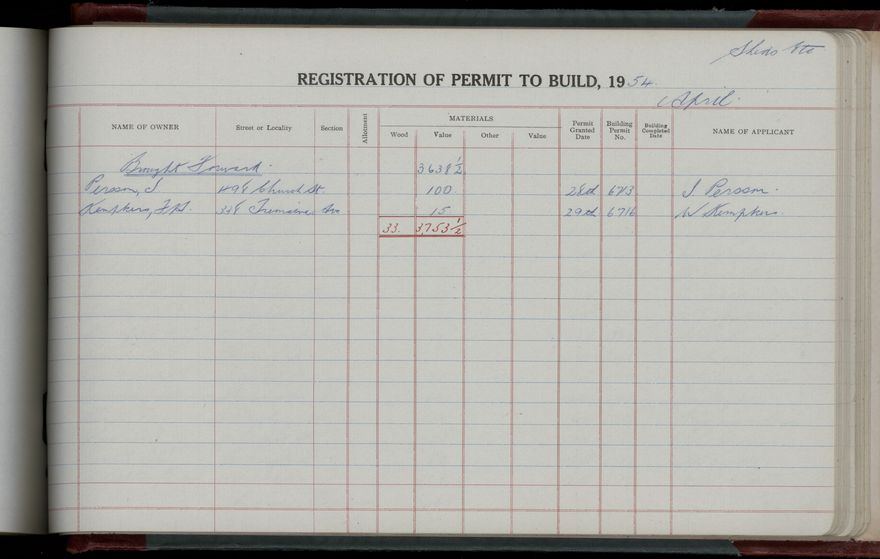 Sheds Etc
REGISTRATION OF PERMIT TO BUILD, 1954
April.
NAME OF OWNER Street or Locality Section Allotment MATERIALS Wood Value Other Value Permit Granted Date Building Permit No. Building Completed Date NAME OF APPLICANT
Brought Forward. 3638½
Persson, J Church St. 100 28th J. Persson.
Kempkers, Tremaine Ave 15 29th 6716 W Kempkers.
33. 3,753½